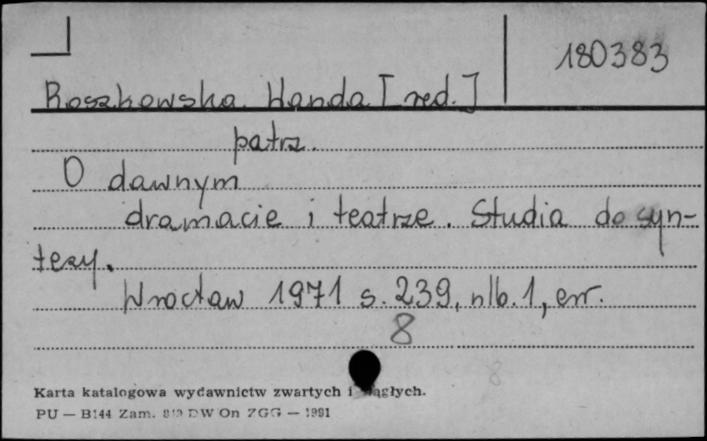 180383
Roszkowska Wanda [red.]
patrz.
O dawnym
dramacie i teatrze. Studia do syn-
tezy.
Wrocław 1971 s. 239, nlb. 1, err.
8
Karta katalogowa wydawnictw zwartych i ciągłych.
PU — B144 Zam. DW On ZGG — 1981